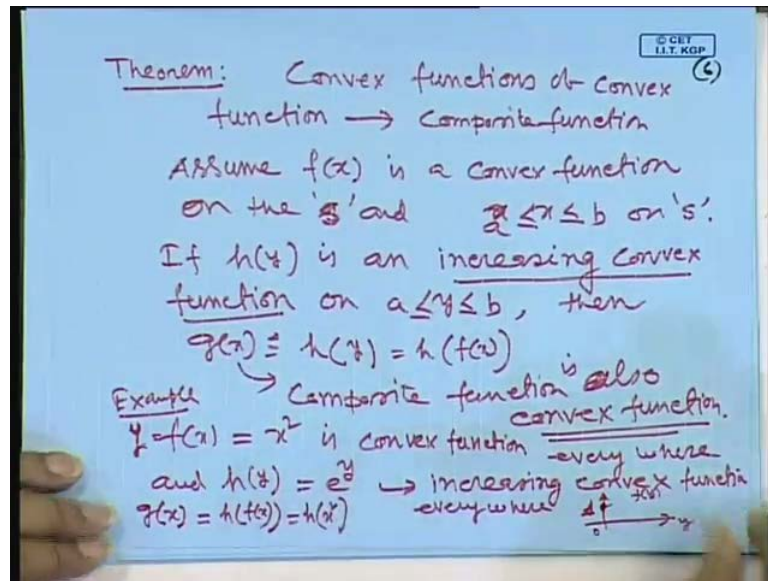 © CET
I.I.T. KGP
Theorem: Convex functions of convex
function → Composite function
Assume f(x) is a convex function
on the 'S' and a ≤ x ≤ b on 'S'.
If h(y) is an increasing convex
function on a ≤ y ≤ b, then
g(x) ≜ h(y) = h(f(x))
↳ Composite function is also
convex function.
Example
y = f(x) = x² is convex function every where
and h(y) = e^y → increasing convex function
everywhere
g(x) = h(f(x)) = h(x²)
0 y